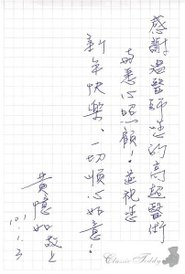 感謝溫醫師您的高超醫術
與悉心照顧！並祝您
新年快樂、一切順心如意！
黃憶如敬上
101.1.3
Classic Teddy